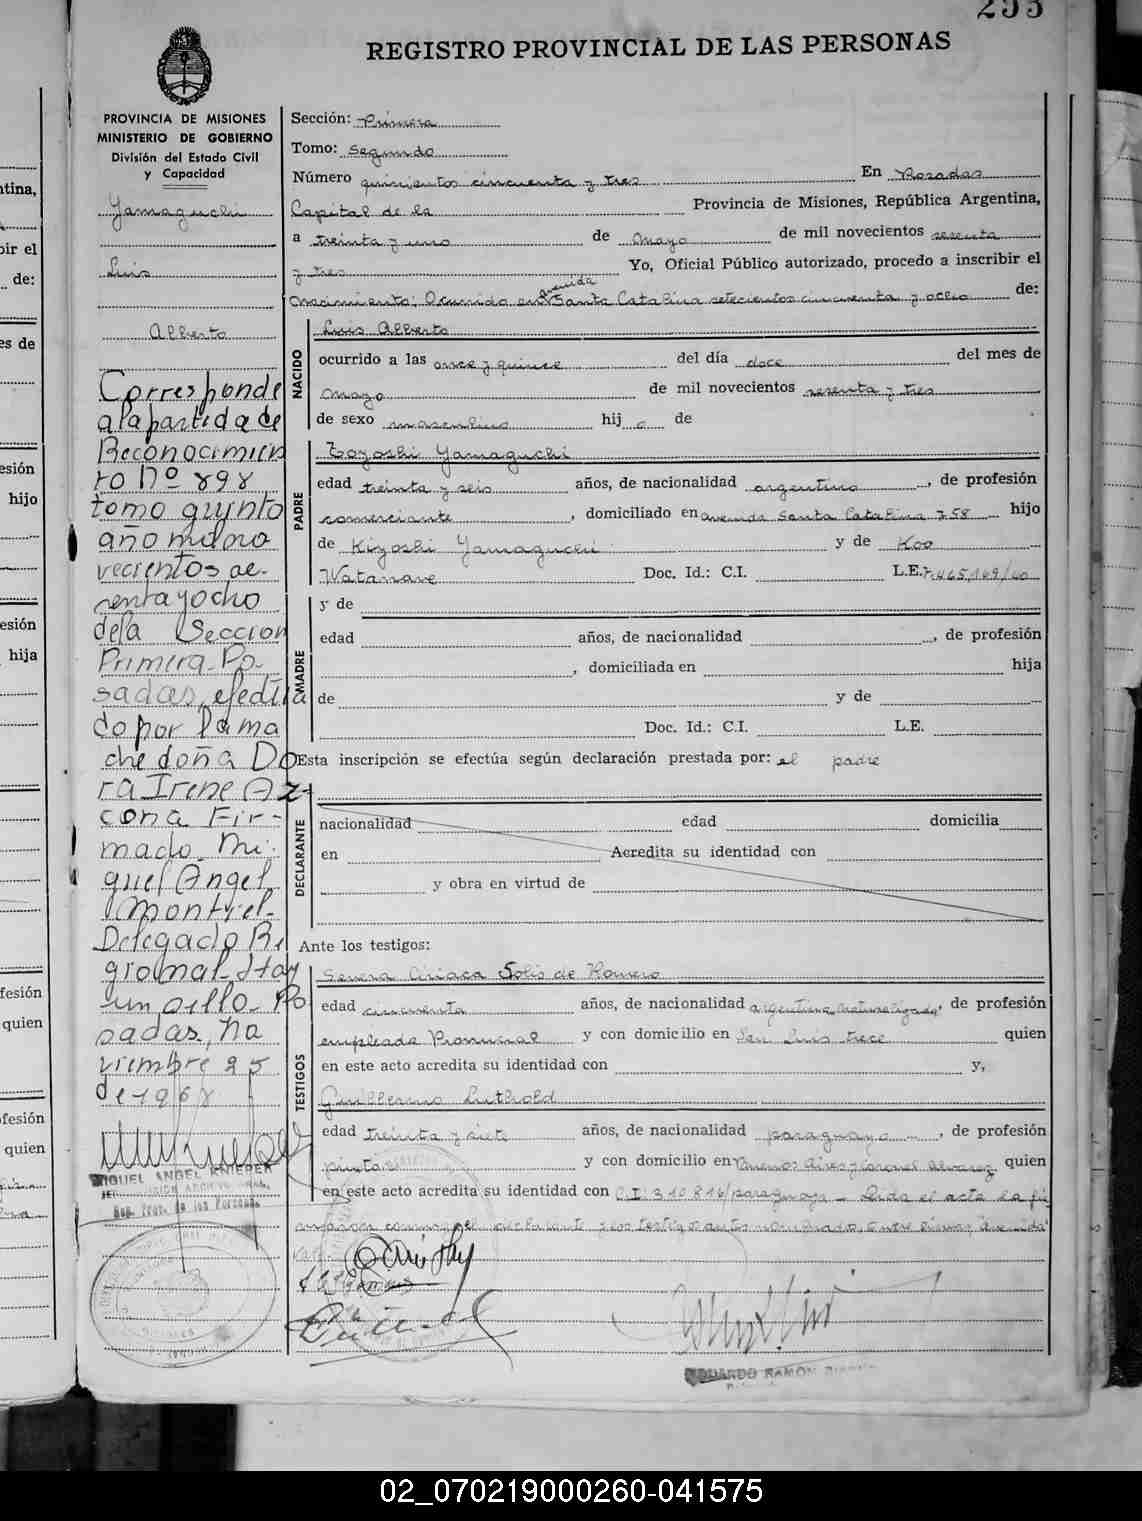 255
REGISTRO PROVINCIAL DE LAS PERSONAS
PROVINCIA DE MISIONES
MINISTERIO DE GOBIERNO
División del Estado Civil
y Capacidad
Yamaguchi
Luis
Alberto
Corresponde
a la partida de
Reconocimien
to Nº 898
tomo quinto
año mil no
vecientos se-
senta y ocho
de la Sección
Primera-Po-
sadas, efectua
do por la ma
dre doña Do
ra Irene Az-
cona Fir-
mado. Mi-
guel Angel
Montiel-
Delegado Re
gional-Hay
un sello-Po
sadas, no
viembre 25
de 1968
MIGUEL ANGEL KNIEPER
Reg. Prov. de las Personas
Sección: Primera
Tomo: Segundo
Número quinientos cincuenta y tres En Posadas
Capital de la Provincia de Misiones, República Argentina,
a treinta y uno de Mayo de mil novecientos sesenta
y tres Yo, Oficial Público autorizado, procedo a inscribir el
avenida
nacimiento; Ocurrido en Santa Catalina setecientos cincuenta y ocho de:
NACIDO
Luis Alberto
ocurrido a las once y quince del día doce del mes de
Mayo de mil novecientos sesenta y tres
de sexo masculino hij o de
PADRE
Toyoshi Yamaguchi
edad treinta y seis años, de nacionalidad argentino, de profesión
comerciante, domiciliado en avenida Santa Catalina 758 hijo
de Kiyoshi Yamaguchi y de Koo
Watanave Doc. Id.: C.I. L.E. 7.465.169/60
MADRE
y de
edad años, de nacionalidad, de profesión
, domiciliada en hija
de y de
Doc. Id.: C.I. L.E.
Esta inscripción se efectúa según declaración prestada por: el padre
DECLARANTE
nacionalidad edad domicilia
en Acredita su identidad con
y obra en virtud de
Ante los testigos:
TESTIGOS
Severa Ciriaca Solis de Romero
edad cincuenta años, de nacionalidad argentina naturalizada, de profesión
empleada Provincial y con domicilio en San Luis trece quien
en este acto acredita su identidad con y,
Guillermo Luthold
edad treinta y siete años, de nacionalidad paraguayo, de profesión
pintor y con domicilio en Buenos Aires y Coronel Alvarez quien
en este acto acredita su identidad con C.I. 310.816/paraguaya - Leida el acta la fir
maron conmigo el declarante y los testigos antes nombrados, Entre lineas, avenida
vale
EDUARDO RAMON
tina,
bir el
de:
es de
esión
hijo
esión
hija
fesión
quien
fesión
quien
02_070219000260-041575